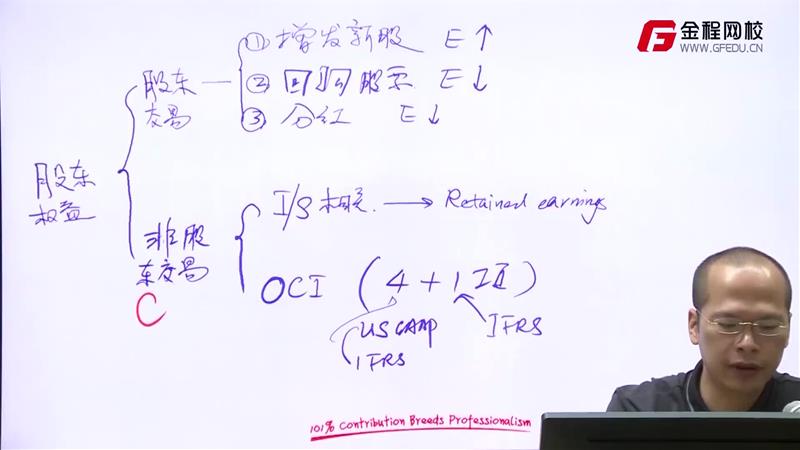 金程网校
WWW.GFEDU.CN
① 增发新股 E ↑
股东交易
② 回购股票 E ↓
③ 分红 E ↓
股东权益
I/S 相关. → Retained earnings
非股东交易
C
OCI (4 + 1 项)
US GAAP
IFRS
IFRS
101% Contribution Breeds Professionalism